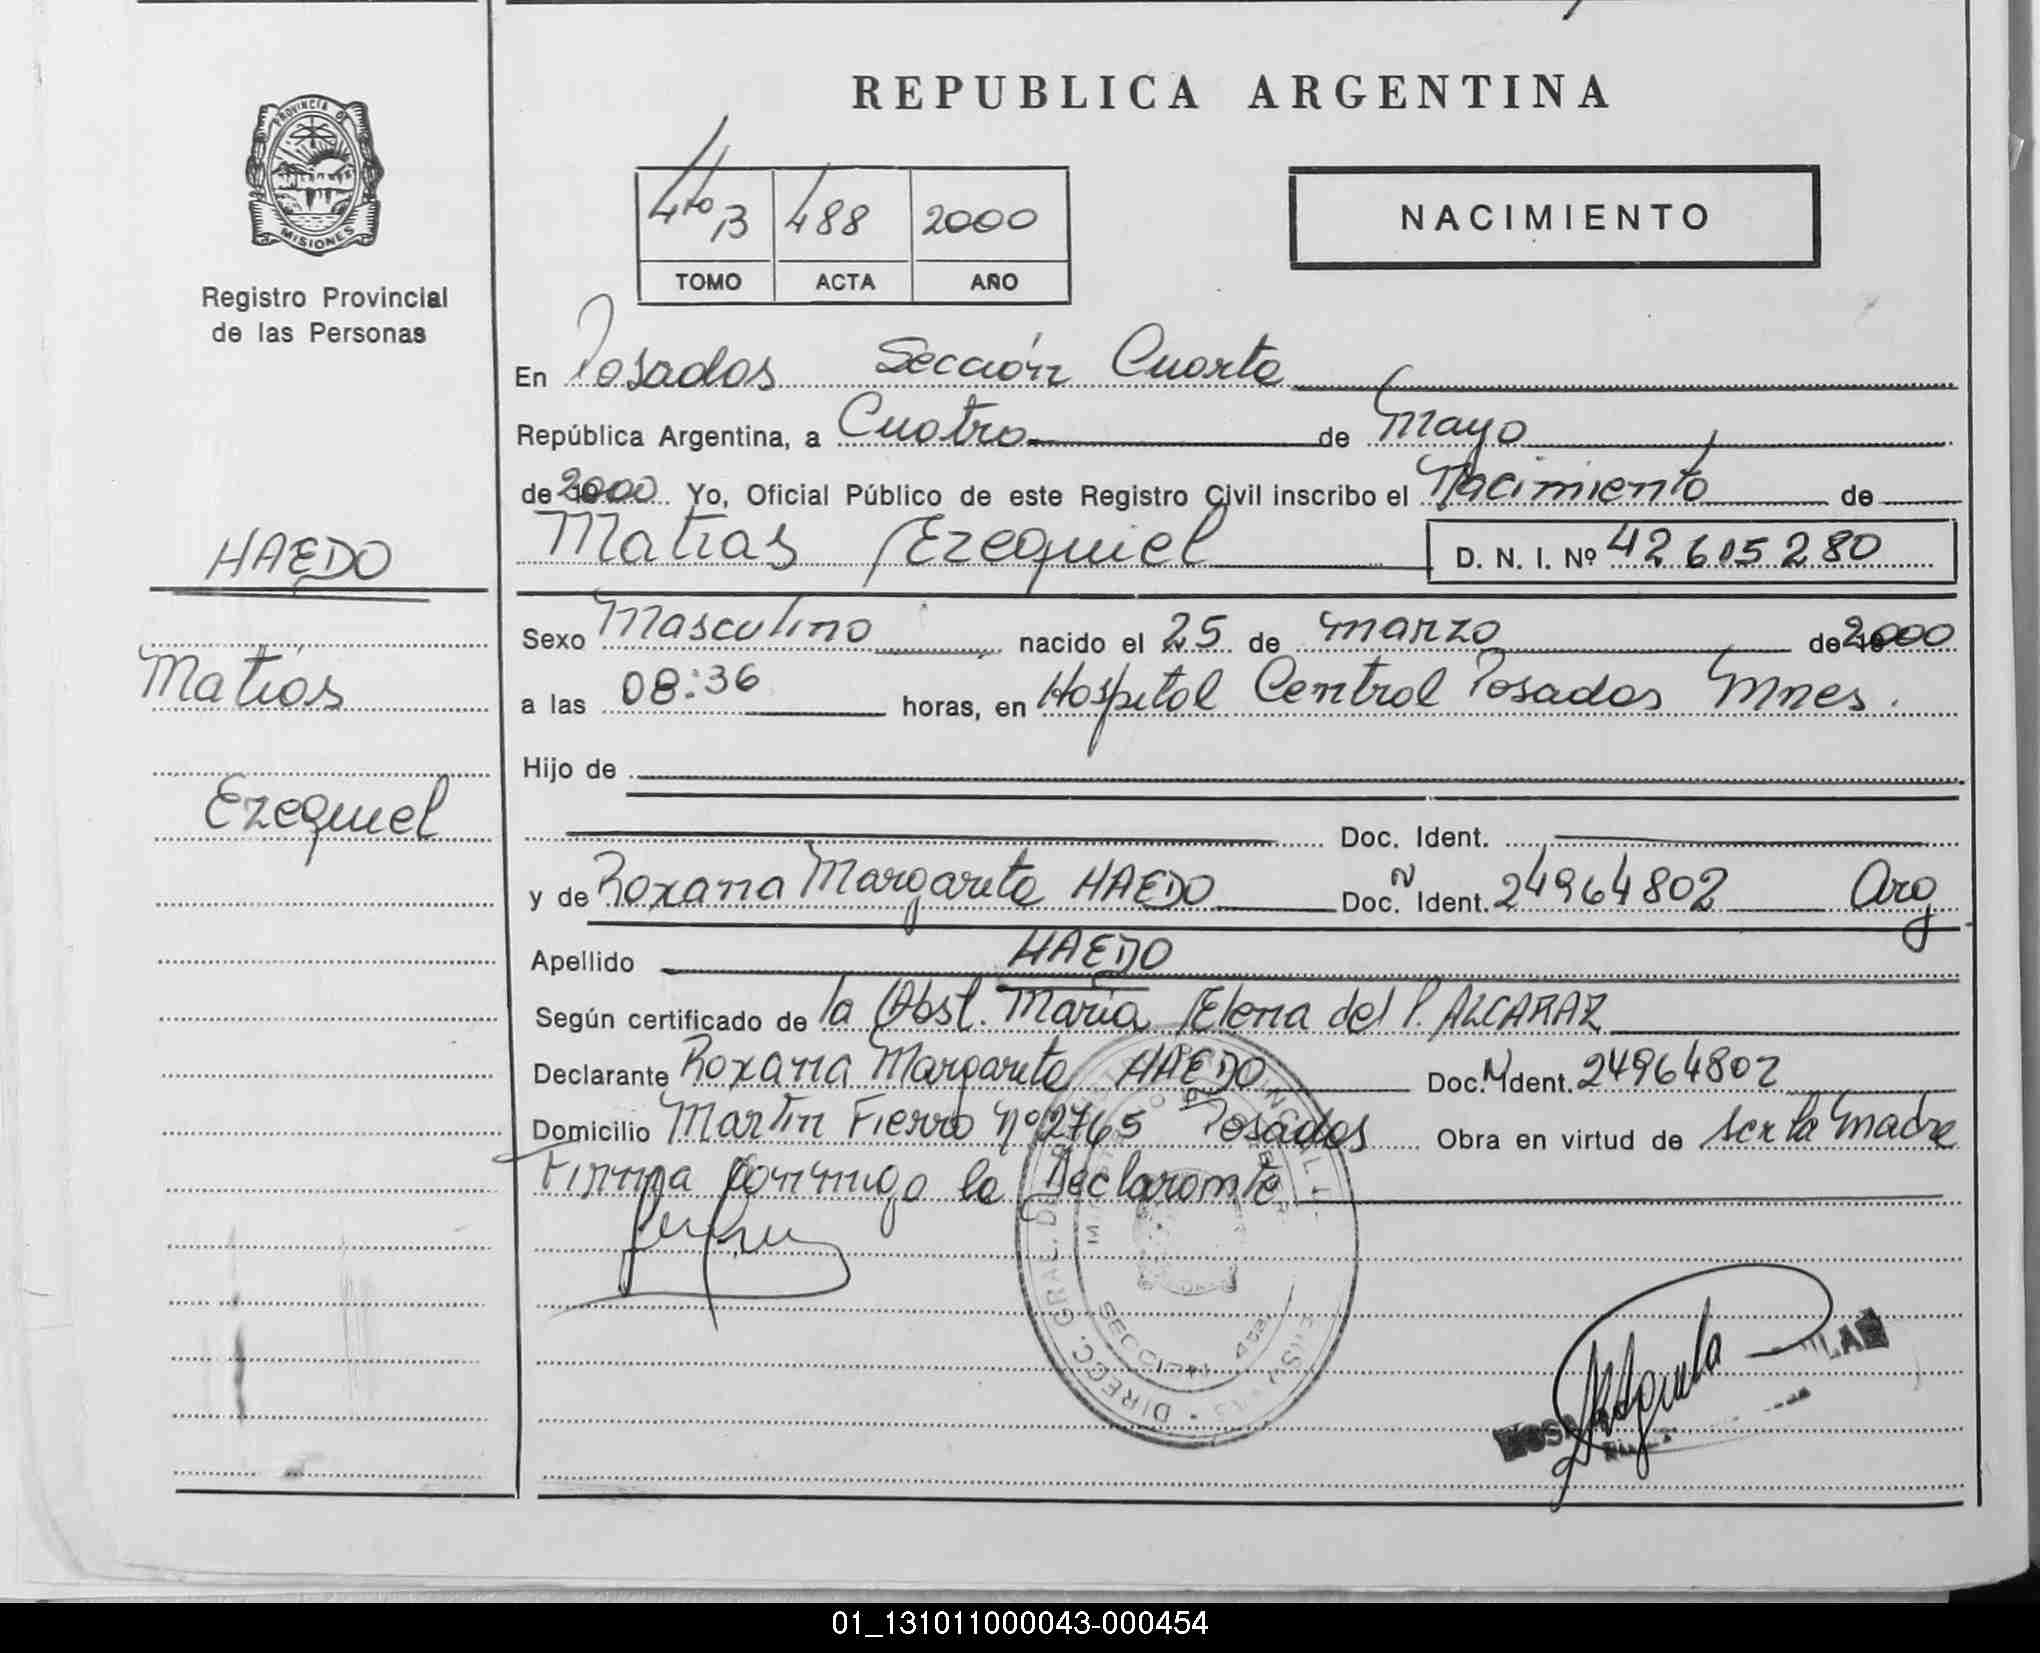 REPUBLICA ARGENTINA
PROVINCIA DE
MISIONES
Registro Provincial
de las Personas
4to B 488 2000
TOMO ACTA AÑO
NACIMIENTO
En Posadas Sección Cuarta
República Argentina, a Cuatro de Mayo
de 2000 Yo, Oficial Público de este Registro Civil inscribo el Nacimiento de
Matias Ezequiel D. N. I. Nº 42605280
HAEDO
Matías
Ezequiel
Sexo Masculino nacido el 25 de marzo de 2000
a las 08:36 horas, en Hospital Central Posadas Mnes.
Hijo de
Doc. Ident.
y de Roxana Margarita HAEDO Doc. N Ident. 24964802 Arg
Apellido HAEDO
Según certificado de la Obst. María Elena del P. ALCARAZ
Declarante Roxana Margarita HAEDO Doc. N Ident. 24964802
Domicilio Martin Fierro Nº 2765 Posadas Obra en virtud de ser la madre
Firma conmigo la Declarante
DIRECC. GRAL. DEL
SECCION 4ta
01_131011000043-000454